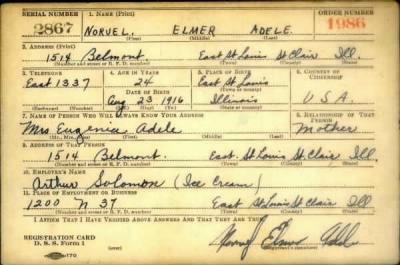 SERIAL NUMBER 1. NAME (Print) ORDER NUMBER
2867 NORVEL. ELMER ADELE. 1986
(First) (Middle) (Last)
2. ADDRESS (Print)
1514 Belmont. East St Louis St Clair Ill.
(Number and street or R. F. D. number) (Town) (County) (State)
3. TELEPHONE 4. AGE IN YEARS 5. PLACE OF BIRTH 6. COUNTRY OF CITIZENSHIP
East 1337 24 East St Louis
DATE OF BIRTH (Town or county)
Aug 23 1916 Illinois U.S.A.
(Exchange) (Number) (Mo.) (Day) (Yr.) (State or country)
7. NAME OF PERSON WHO WILL ALWAYS KNOW YOUR ADDRESS 8. RELATIONSHIP OF THAT PERSON
Mrs Eugenia Adele Mother
(Mr., Mrs., Miss) (First) (Middle) (Last)
9. ADDRESS OF THAT PERSON
1514 Belmont. East St Louis St. Clair Ill.
(Number and street or R. F. D. number) (Town) (County) (State)
10. EMPLOYER'S NAME
Arthur Solomon (Ice Cream)
11. PLACE OF EMPLOYMENT OR BUSINESS
1200 N 37 East St Louis St Clair Ill
(Number and street or R. F. D. number) (Town) (County) (State)
I AFFIRM THAT I HAVE VERIFIED ABOVE ANSWERS AND THAT THEY ARE TRUE.
REGISTRATION CARD
D. S. S. Form 1 Norvel Elmer Adele
(Registrant's signature)